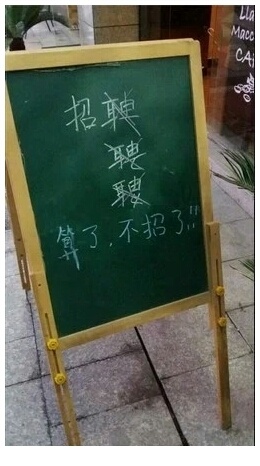 招聘
聘
聘
算了，不招了!!
Lla
Macc
CAj